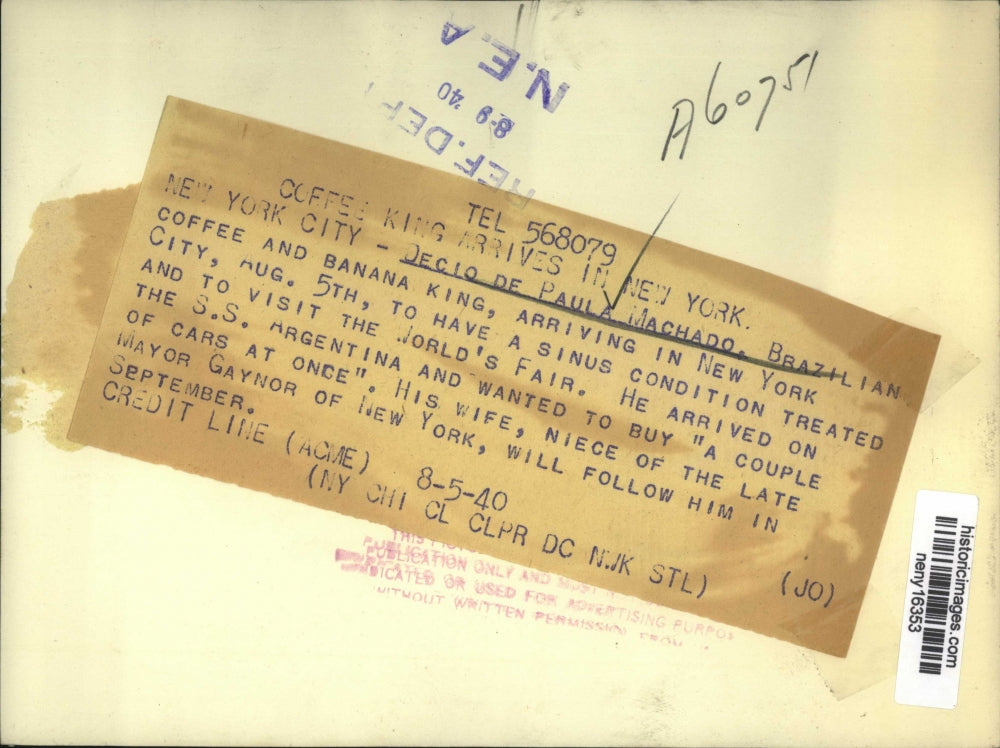 N.E.A
8-9 '40
REF. DEPT
A60751
TEL 568079
COFFEE KING ARRIVES IN NEW YORK.
NEW YORK CITY - DECIO DE PAULA MACHADO, BRAZILIAN
COFFEE AND BANANA KING, ARRIVING IN NEW YORK
CITY, AUG. 5TH, TO HAVE A SINUS CONDITION TREATED
AND TO VISIT THE WORLD'S FAIR. HE ARRIVED ON
THE S.S. ARGENTINA AND WANTED TO BUY "A COUPLE
OF CARS AT ONCE". HIS WIFE, NIECE OF THE LATE
MAYOR GAYNOR OF NEW YORK, WILL FOLLOW HIM IN
SEPTEMBER.
CREDIT LINE (ACME) 8-5-40
(NY CHI CL CLPR DC NWK STL) (JO)
THIS
PUBLICATION ONLY AND MUST
OR USED FOR ADVERTISING PURPOS
WITHOUT WRITTEN PERMISSION FROM
historicimages.com
neny16353